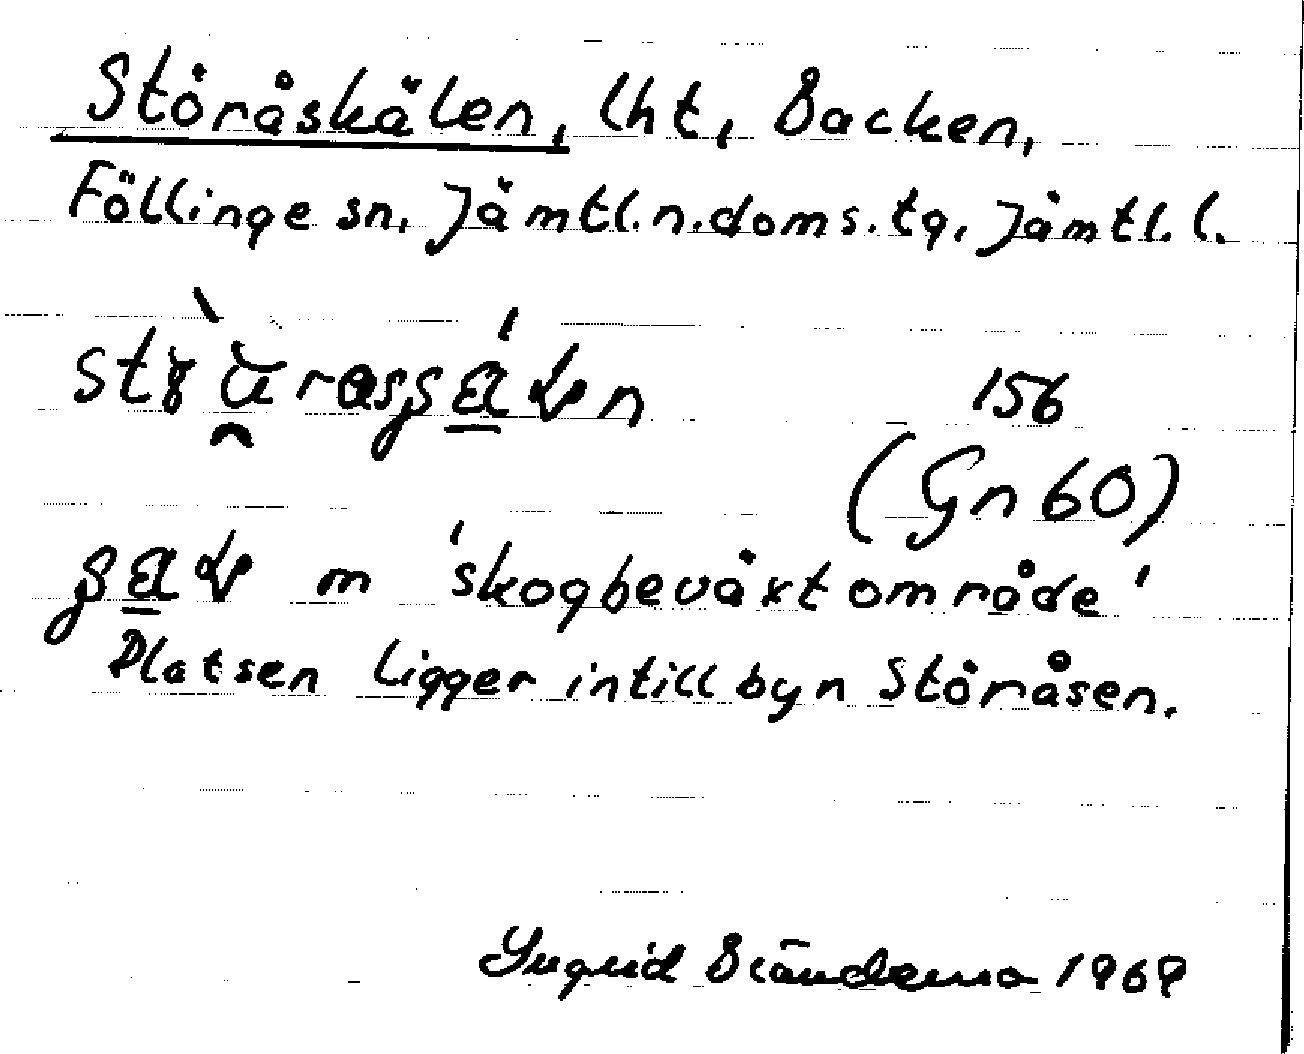 Störåskälen, lht, Backen,
Föllinge sn. Jämtl.n.doms.tg. Jämtl. l.
156
(Gn 60)
m 'skogbeväxt område'
Platsen ligger intill byn Störåsen.
Ingrid 1969